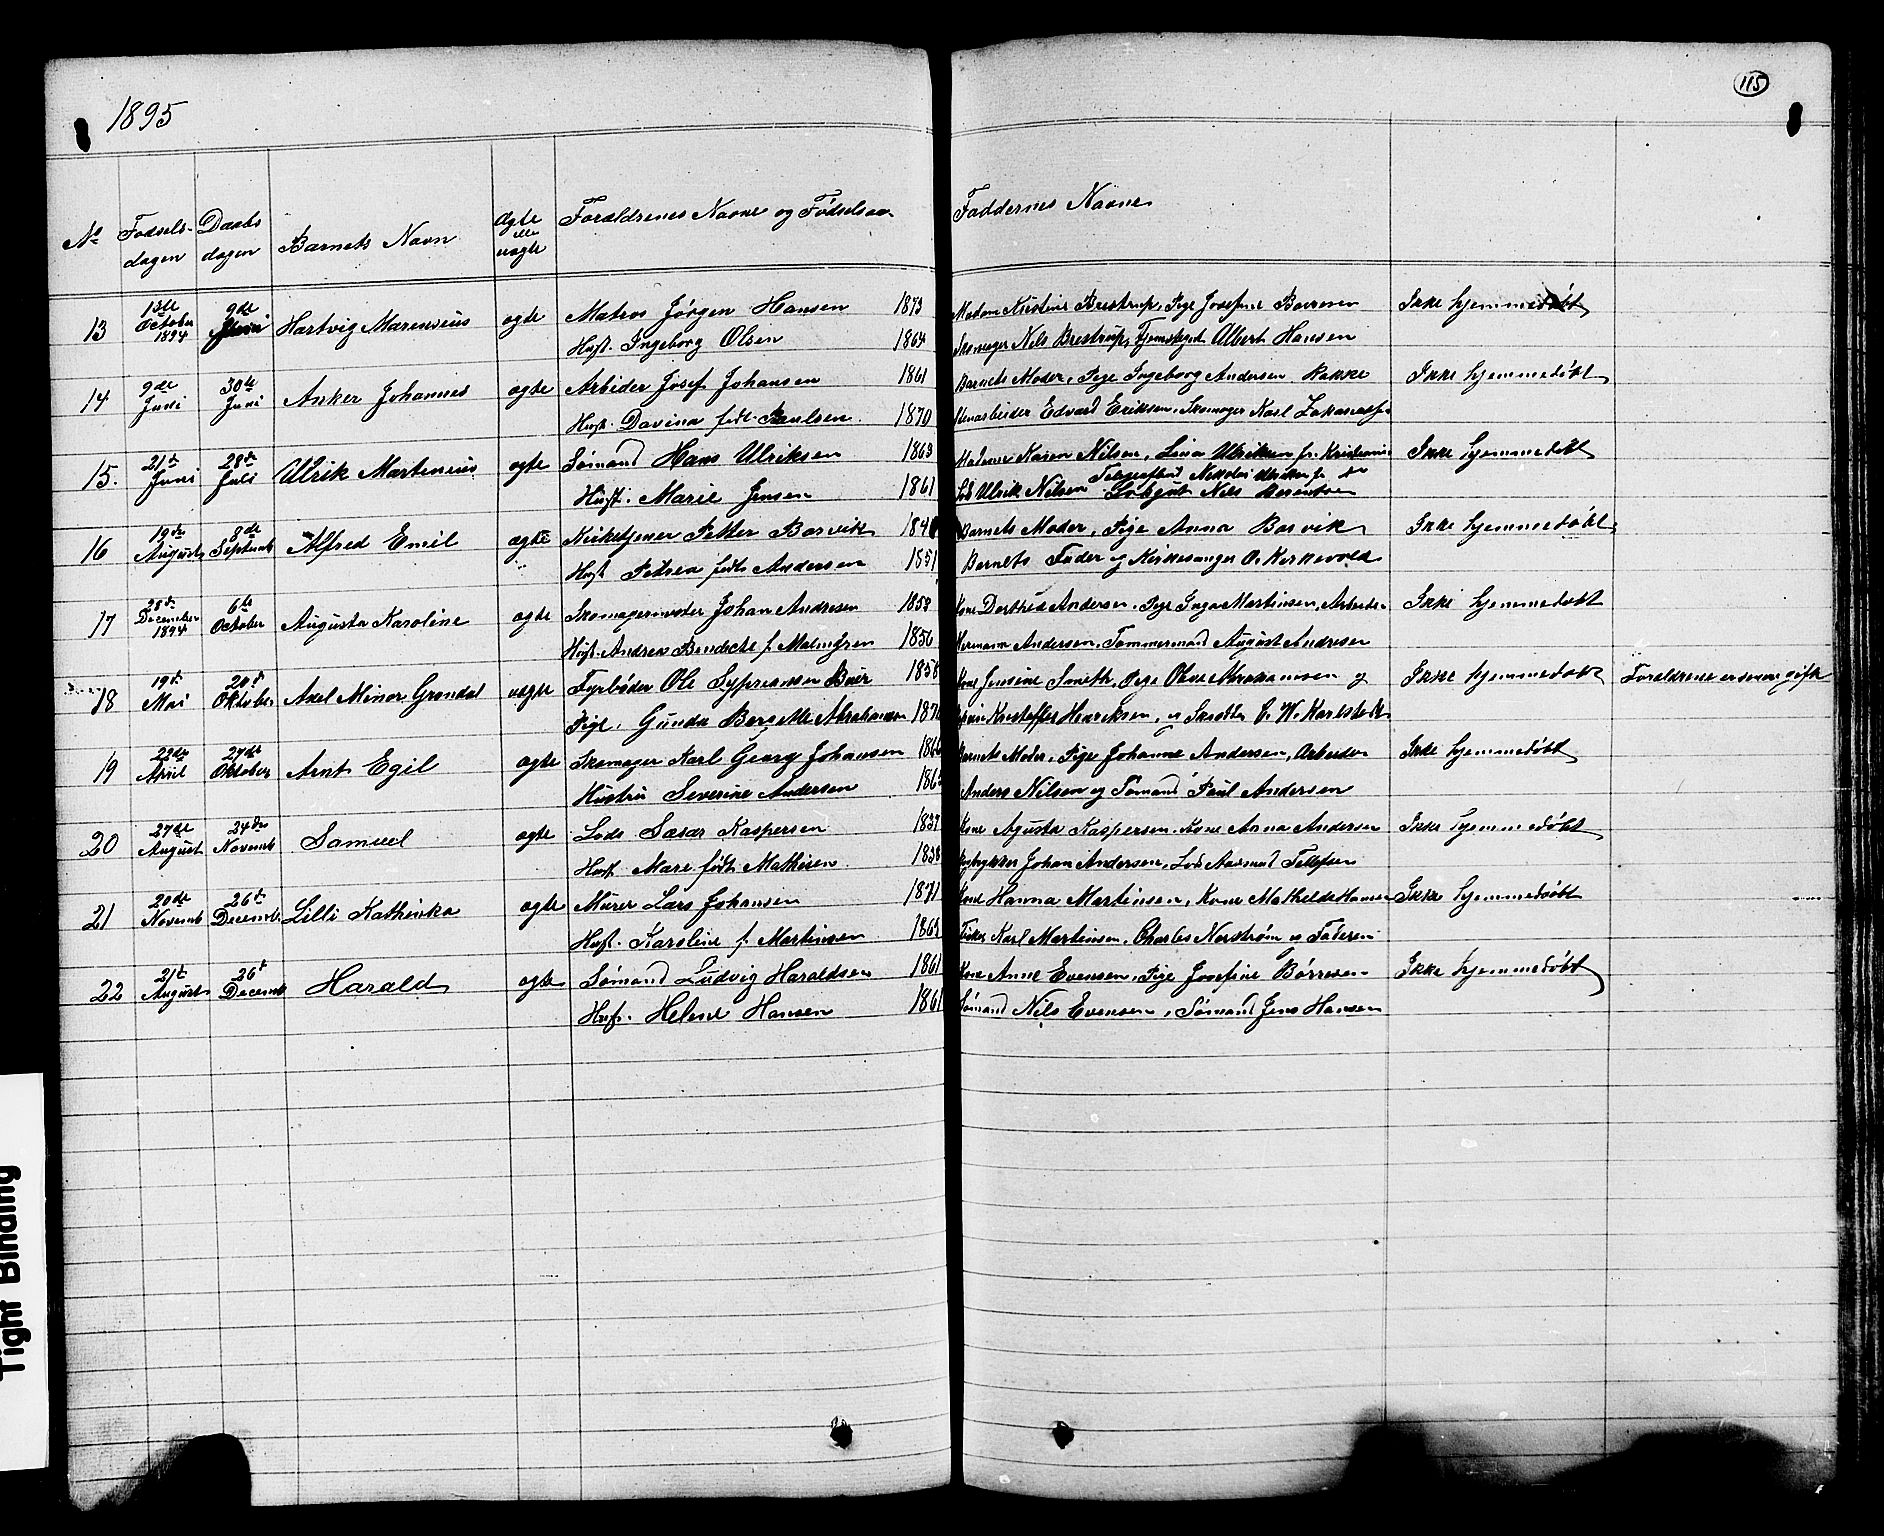 1895
115
No Fødsels-dagen Daabs dagen Barnets Navn ægte eller uægte Forældrenes Navne og Fødselsaar Faddernes Navne
13 13de October 1894 9de Juni Hartvig Marenius ægte Matros Jørgen Hansen 1873 Madam Kristine Brestrup, Pige Josefine Ikke hjemmedøbt
Hust. Ingeborg Olsen 1864 Skomager Nils Brestrup, Albert Hansen
14 9de Juni 30te Juni Anker Johannes ægte Arbeider Josef Johansen 1861 Barnets Moder, Pige Ingeborg Andersen Rakke Ikke hjemmedøbt
Hust. Davina født Paulsen 1870 Stenarbeider Edvard Eriksen, Skomager Karl
15. 21de Juni 28de Juli Ulrik Martenius ægte Sømand Hans Ulriksen 1863 Karen Nilsen, Lina Ulriksen fr. Kristiania Ikke hjemmedøbt
Hust. Marie Jensen 1861 Lods Ulrik Nilsen Nils Berentsen
16 19de August 8de Septemb Alfred Emil ægte Kirketjener Petter Barvik Barnets Moder, Pige Anna Barvik Ikke hjemmedøbt
Hust Petrea født Andersen 1851 Barnets Fader og Kirkesanger O. Kirkevold
17 28de December 1894 6te October Augusta Karoline ægte Skomagermester Johan Andresen 1853 Kone Dorthea Andersen, Pige Inga Martinsen, Arbeider Ikke hjemmedøbt
Hust. Andrea Bendicte f. Malmgren 1856 Hermann Andersen, Tømmermand August Andresen
18 19de Mai 20de Oktober Axel Minor Grøndal uægte Fyrbøder Ole Sypriansen Buer 1858 Kone Jensine Smith, Pige Olava Abrahamsen og Ikke hjemmedøbt Forældrene ersenere gift
Pige, Gunda Bergette Abrahamsen Kristoffer Henriksen, og Skrædder C. W. Karlstedt
19 22de April 27de Oktober Arnt Egil ægte Skomager Karl Georg Johansen 1866 Barnets Moder, Pige Johanne Andersen, Arbeider Ikke hjemmedøbt
Hustru Severine Andersen Anders Nilsen og Sømand Paul Andersen
20 27de August 24de Novemb Samuel ægte Lods Sæsar Kaspersen 1837 Kone Agusta Kaspersen, Kone Anna Andersen Ikke hjemmedøbt
Hust. Mare født Mathisen 1838 Johan Andersen, Lods Aasmund Tellefsen
21 20de Novemb 26de Decemb Lilli Kathinka ægte Murer Lars Johansen 1871 Kone Hanna Martinsen, Kone Mathilde Hansen Ikke hjemmedøbt
Hust. Karoline f. Martinsen Fisker Karl Martinsen, Charles Norstrøm og Faderen
22 21de August 26de Decemb Harald ægte Sømand Ludvig Haraldsen 1861 Kone Anne Evensen, Pige Josefine Børresen Ikke hjemmedøbt
Hust. Helene Hansen 1861 Sømand Nils Evensen, Sømand Jens Hansen
Tight Binding